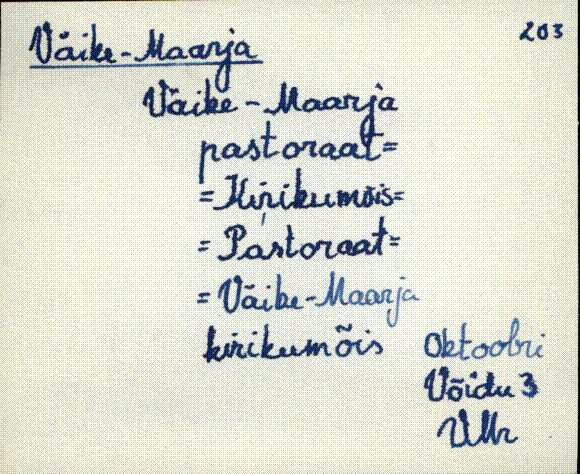 203
Väike-Maarja
Väike-Maarja
pastoraat=
=Kirikumõis=
=Pastoraat=
=Väike-Maarja
kirikumõis
Oktoobri
Võidu 3
VMr